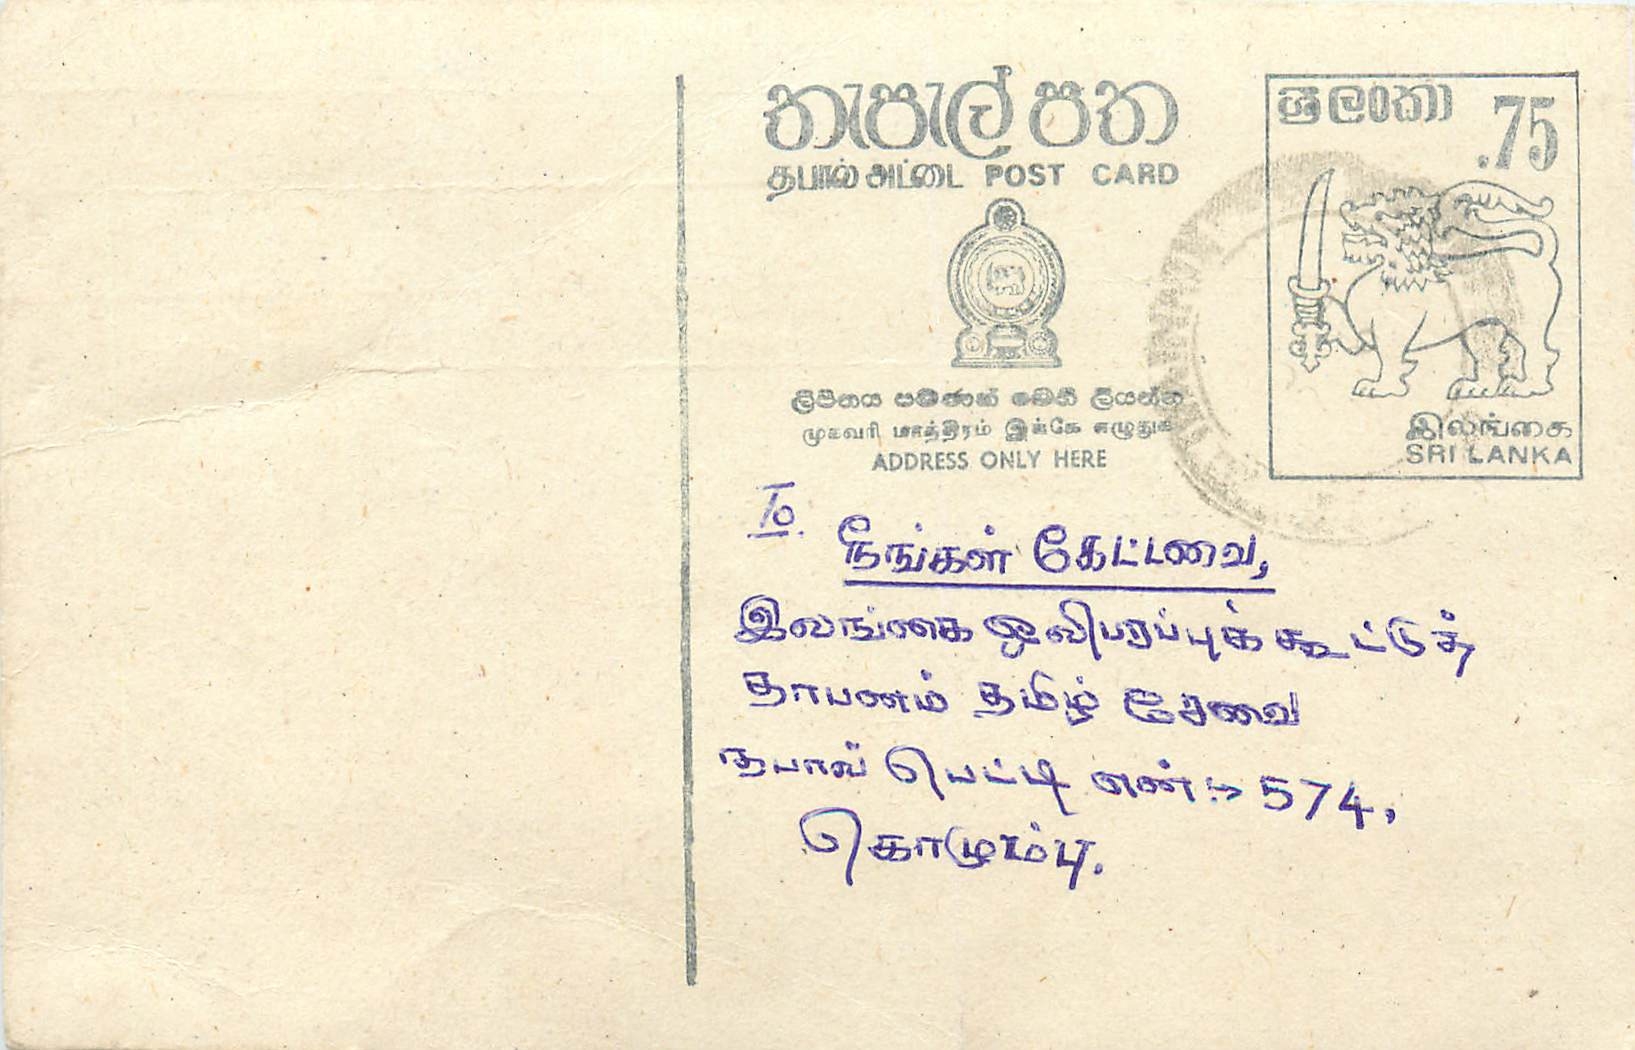 තැපැල් පත
தபால் அட்டை POST CARD
ශ්‍රී ලංකා .75
ලිපිනය පමණක් මෙහි ලියන්න
முகவரி மாத்திரம் இங்கே எழுதுக
ADDRESS ONLY HERE
இலங்கை
SRI LANKA
To.
நீங்கள் கேட்டவை,
இலங்கை ஒலிபரப்புக் கூட்டுத்
தாபனம் தமிழ் சேவை
தபால் பெட்டி எண்:-> 574,
கொழும்பு.